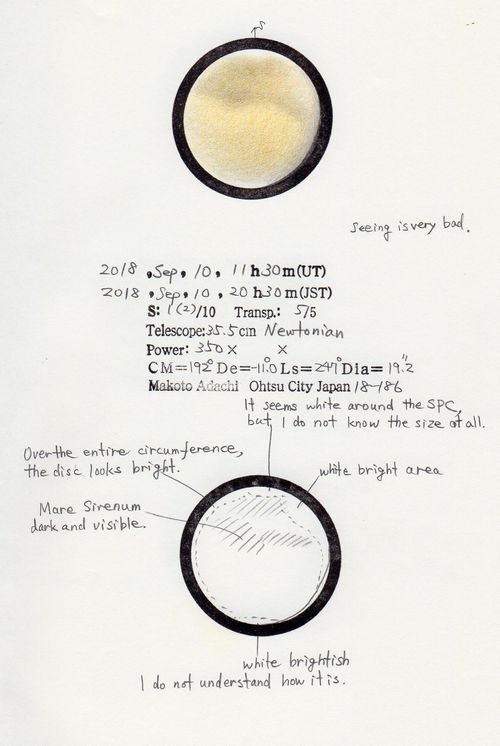 S
Seeing is very bad.
2018, Sep, 10, 11h30m(UT)
2018, Sep, 10, 20h30m(JST)
S: 1(2)/10 Transp.: 5/5
Telescope: 35.5cm Newtonian
Power: 350× ×
CM=192° De=-11.0° Ls=247° Dia= 19.2"
Makoto Adachi Ohtsu City Japan 18-186
It seems white around the SPC,
but I do not know the size at all.
Over the entire circumference,
the disc looks bright.
white bright area
Mare Sirenum
dark and visible.
white brightish
I do not understand how it is.